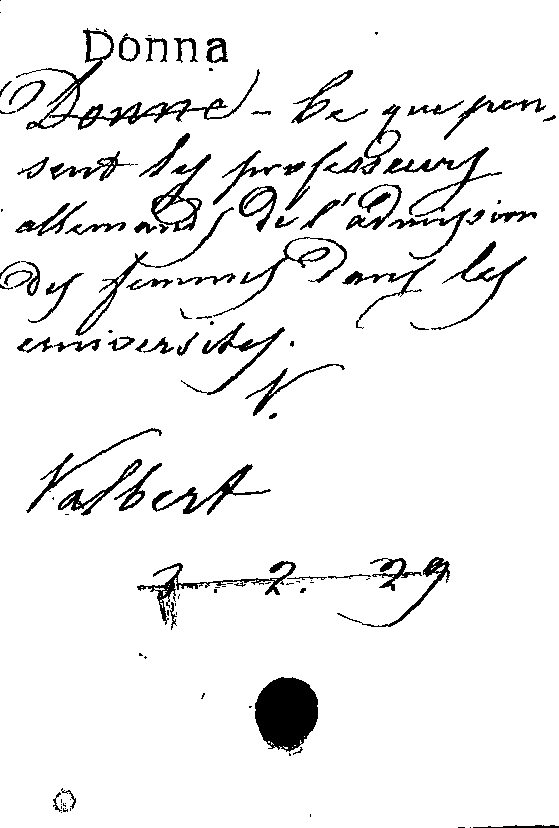 Donna
Donne - Ce que pen-
sent les professeurs
allemands de l'admission
des femmes dans les
universités.
V.
Valbert
3. 2. 29